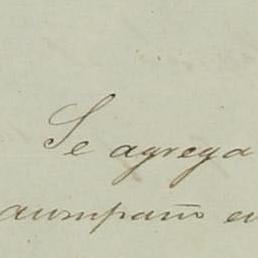 Se agrega
acompaño en